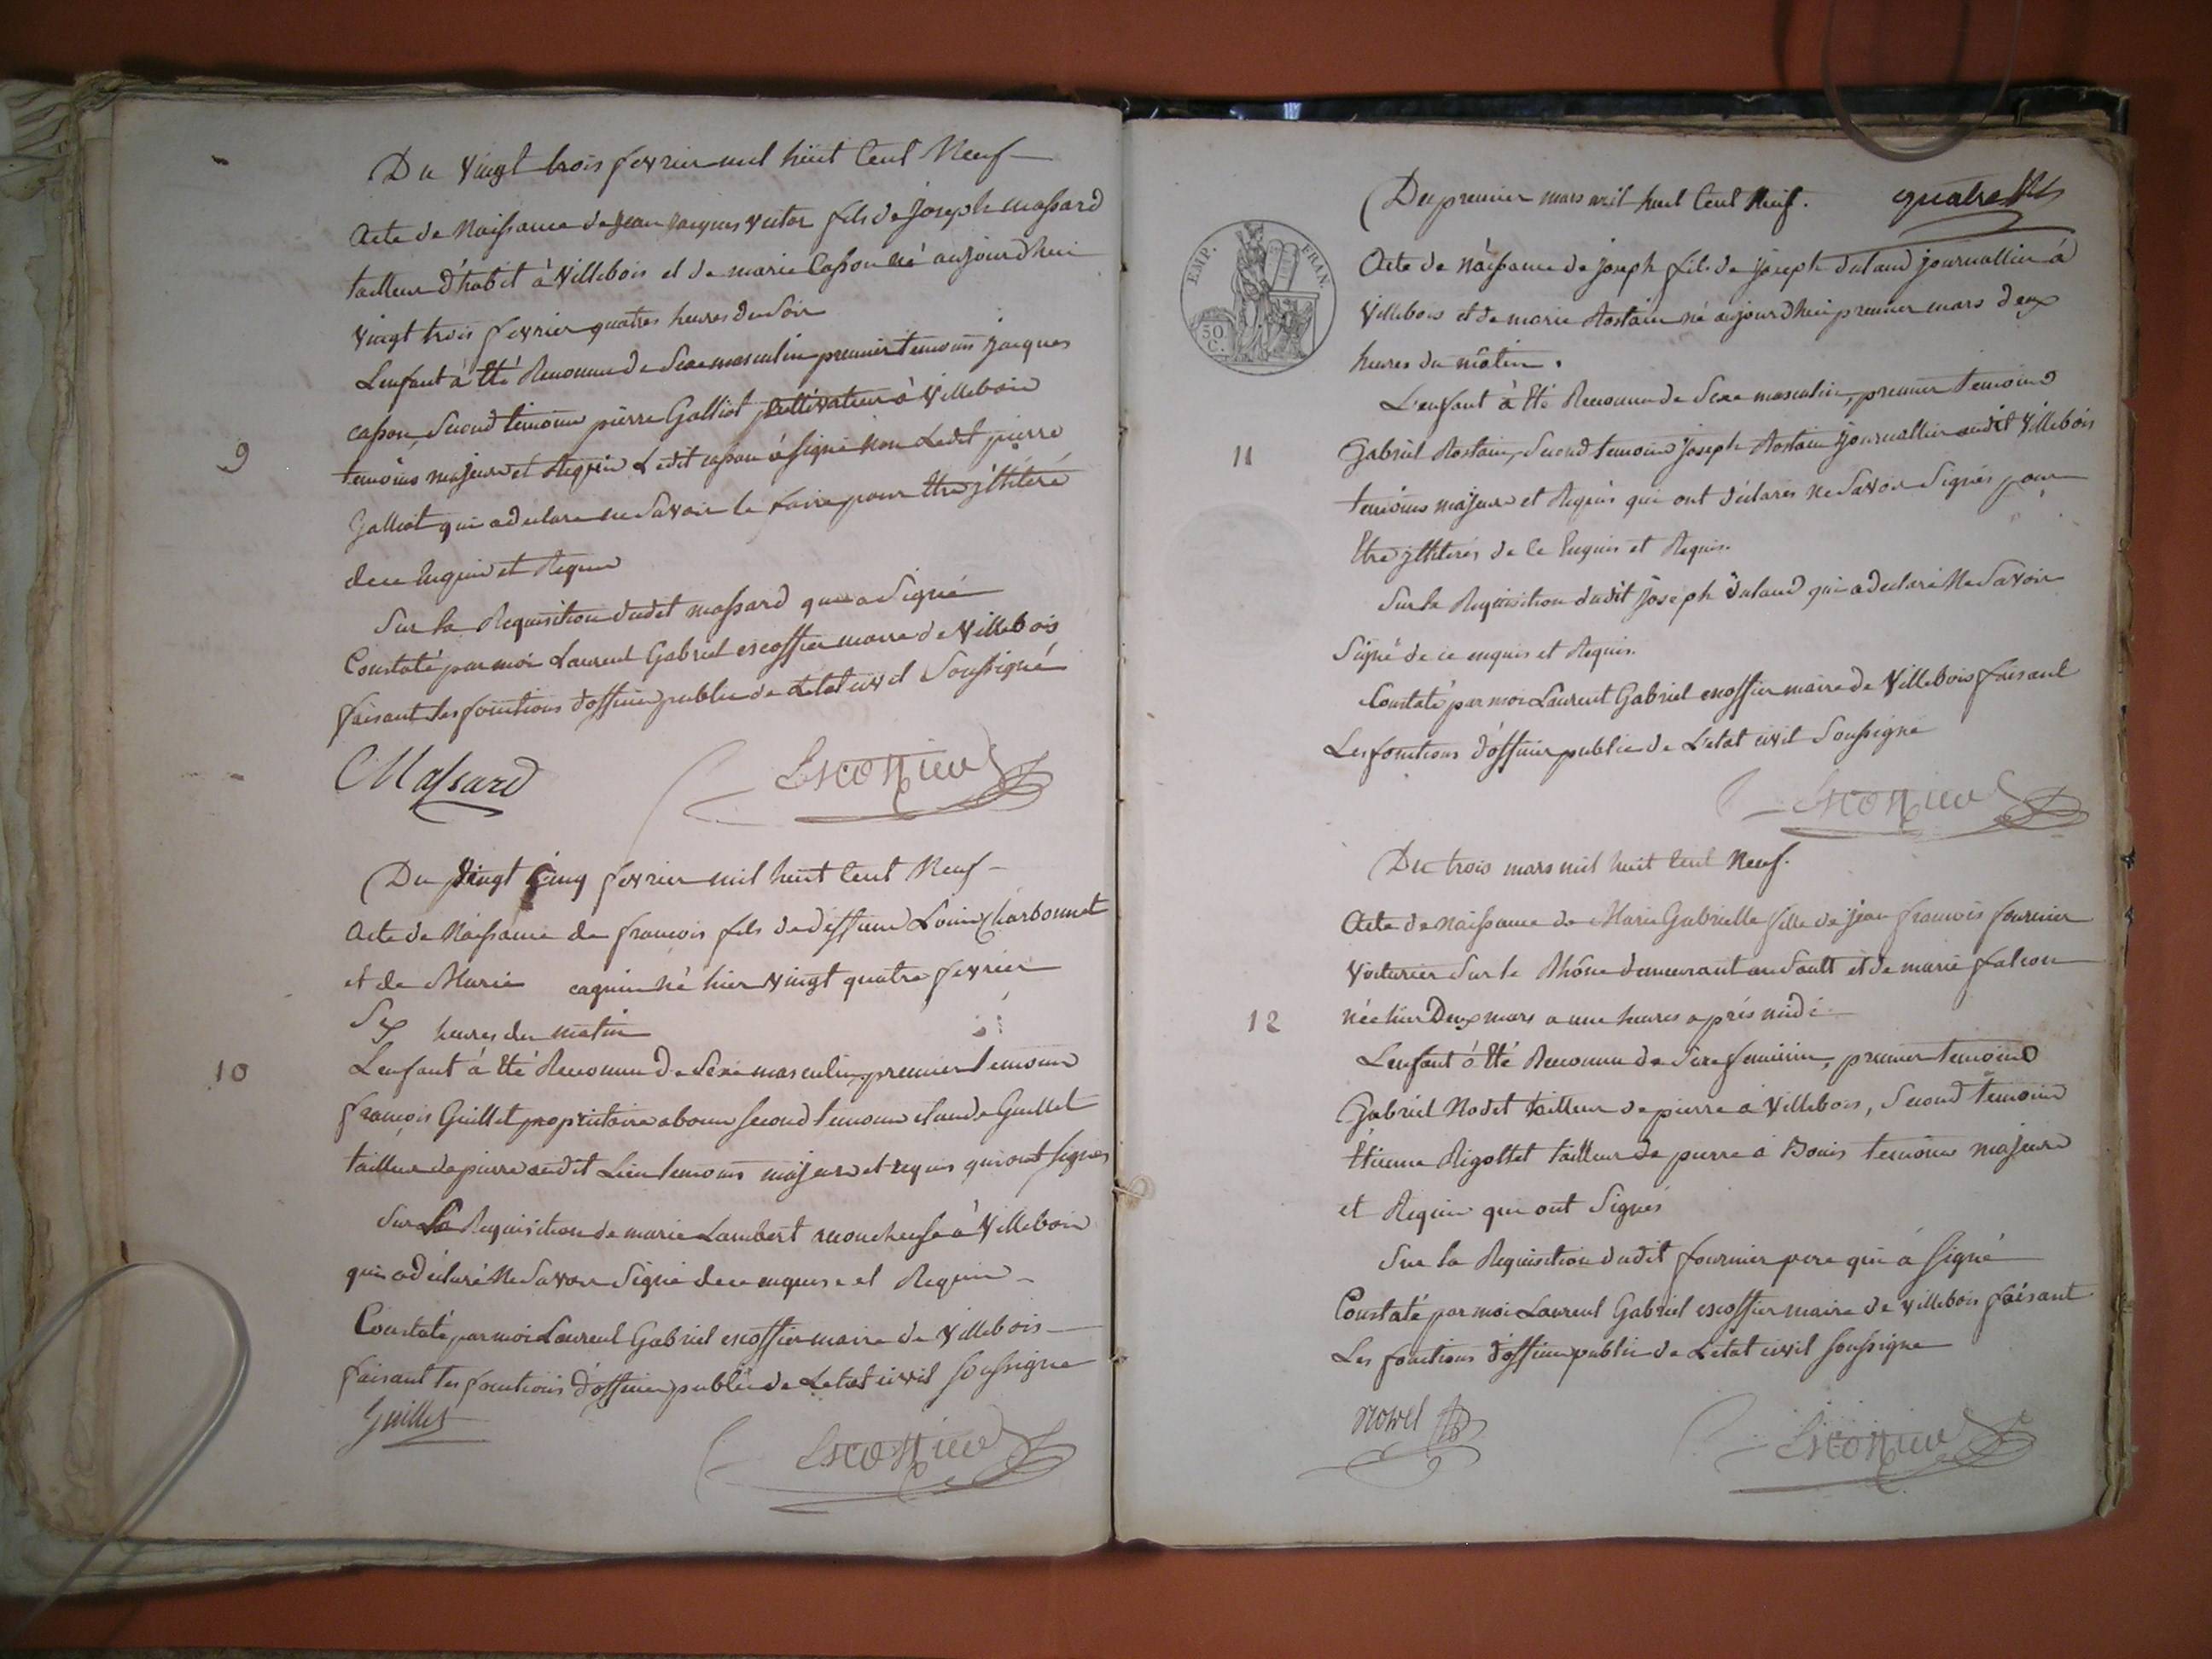 Du vingt trois fevrier mil huit Cent Neuf
Acte de Naissance de Jean Jacques victor fils de joseph massard
tailleur d'habit à villebois et de marie Casson né aujourdhui
vingt trois fevrier quatres heures du soir
Lenfant à Eté Reconnu de Sexe masculin premier temoins jacques
casson, Second temoins pierre Galliot Cultivateur à Villebois
9
temoins majeurs et Requis Ledit casson à signé non Ledit pierre
Galliot qui a declare ne Savoir le faire pour Etre jllitéré
de ce Enquis et Requis
Sur la Requisition dudit massard qui a Signé
Constaté par moi Laurent Gabriel escoffier maire de Villebois
faisant les fonctions d'officier public de Letat civil Soussigné
Massard
Escoffier
Du vingt cinq fevrier mil huit Cent Neuf
Acte de Naissance de francois fils de deffunt Louis Charbonnet
et de Marie caquin né hier vingt quatre fevrier
Six heures du matin
10
Lenfant à Eté Reconnu de Sexe masculin, premier temoins
françois Guillet propriétaire a bouis second temoins claude Guillet
tailleur de pierre audit Lieu temoins majeurs et requis qui ont signés
Sur La Requisition de marie Lambert à Villebois
qui a déclaré Ne Savoir Signé de ce enquise et Requise
Constaté par moi Laurent Gabriel escoffier maire de Villebois
faisant les fonctions d'officier public de Letat civil soussigne
Guillet
Escoffier
Du premier mars mil huit Cent Neuf.
quatre
IEMP. FRAN.
50 C.
Acte de náissance de joseph fils de joseph dulaud journallier à
Villebois et de marie Rostain né aujourdhui premier mars deux
heures du mâtin.
L'enfant à Eté Reconnu de Sexe masculin, premier temoins
11
Gabriel Rostain, Second temoins joseph Rostain journallier audit Villebois
temoins majeurs et Requis qui ont déclarés ne Savoir Signés pour
Etre jllitérés de Ce Enquis et Requis.
Sur la Requisition dudit joseph dulaud qui a declaré Ne Savoir
Signé de ce enquis et Requis.
Constaté par moi Laurent Gabriel escoffier maire de Villebois faisant
Les fonctions d'officier public de L'etat civil Soussigné
Escoffier
Du trois mars mil huit Cent Neuf.
Acte de naissance de Marie Gabrielle fille de jean francois fournier
Voiturier Sur le Rhône demeurant au Sault et de marie falcon
12
née hier Deux mars a une heures aprés midi
Lenfant à Eté Reconnu de Sexe feminin, premier temoins
Gabriel Nodet tailleur de pierre a Villebois, Second temoins
Etienne Rigollet tailleur de pierre a Bouis temoins majeurs
et Requis qui ont Signés
Sur la Requisition dudit fournier pere qui à signé
Constaté par moi Laurent Gabriel escoffier maire de Villebois faisant
Les fonctions d'officier public de L'etat civil soussigne
Escoffier